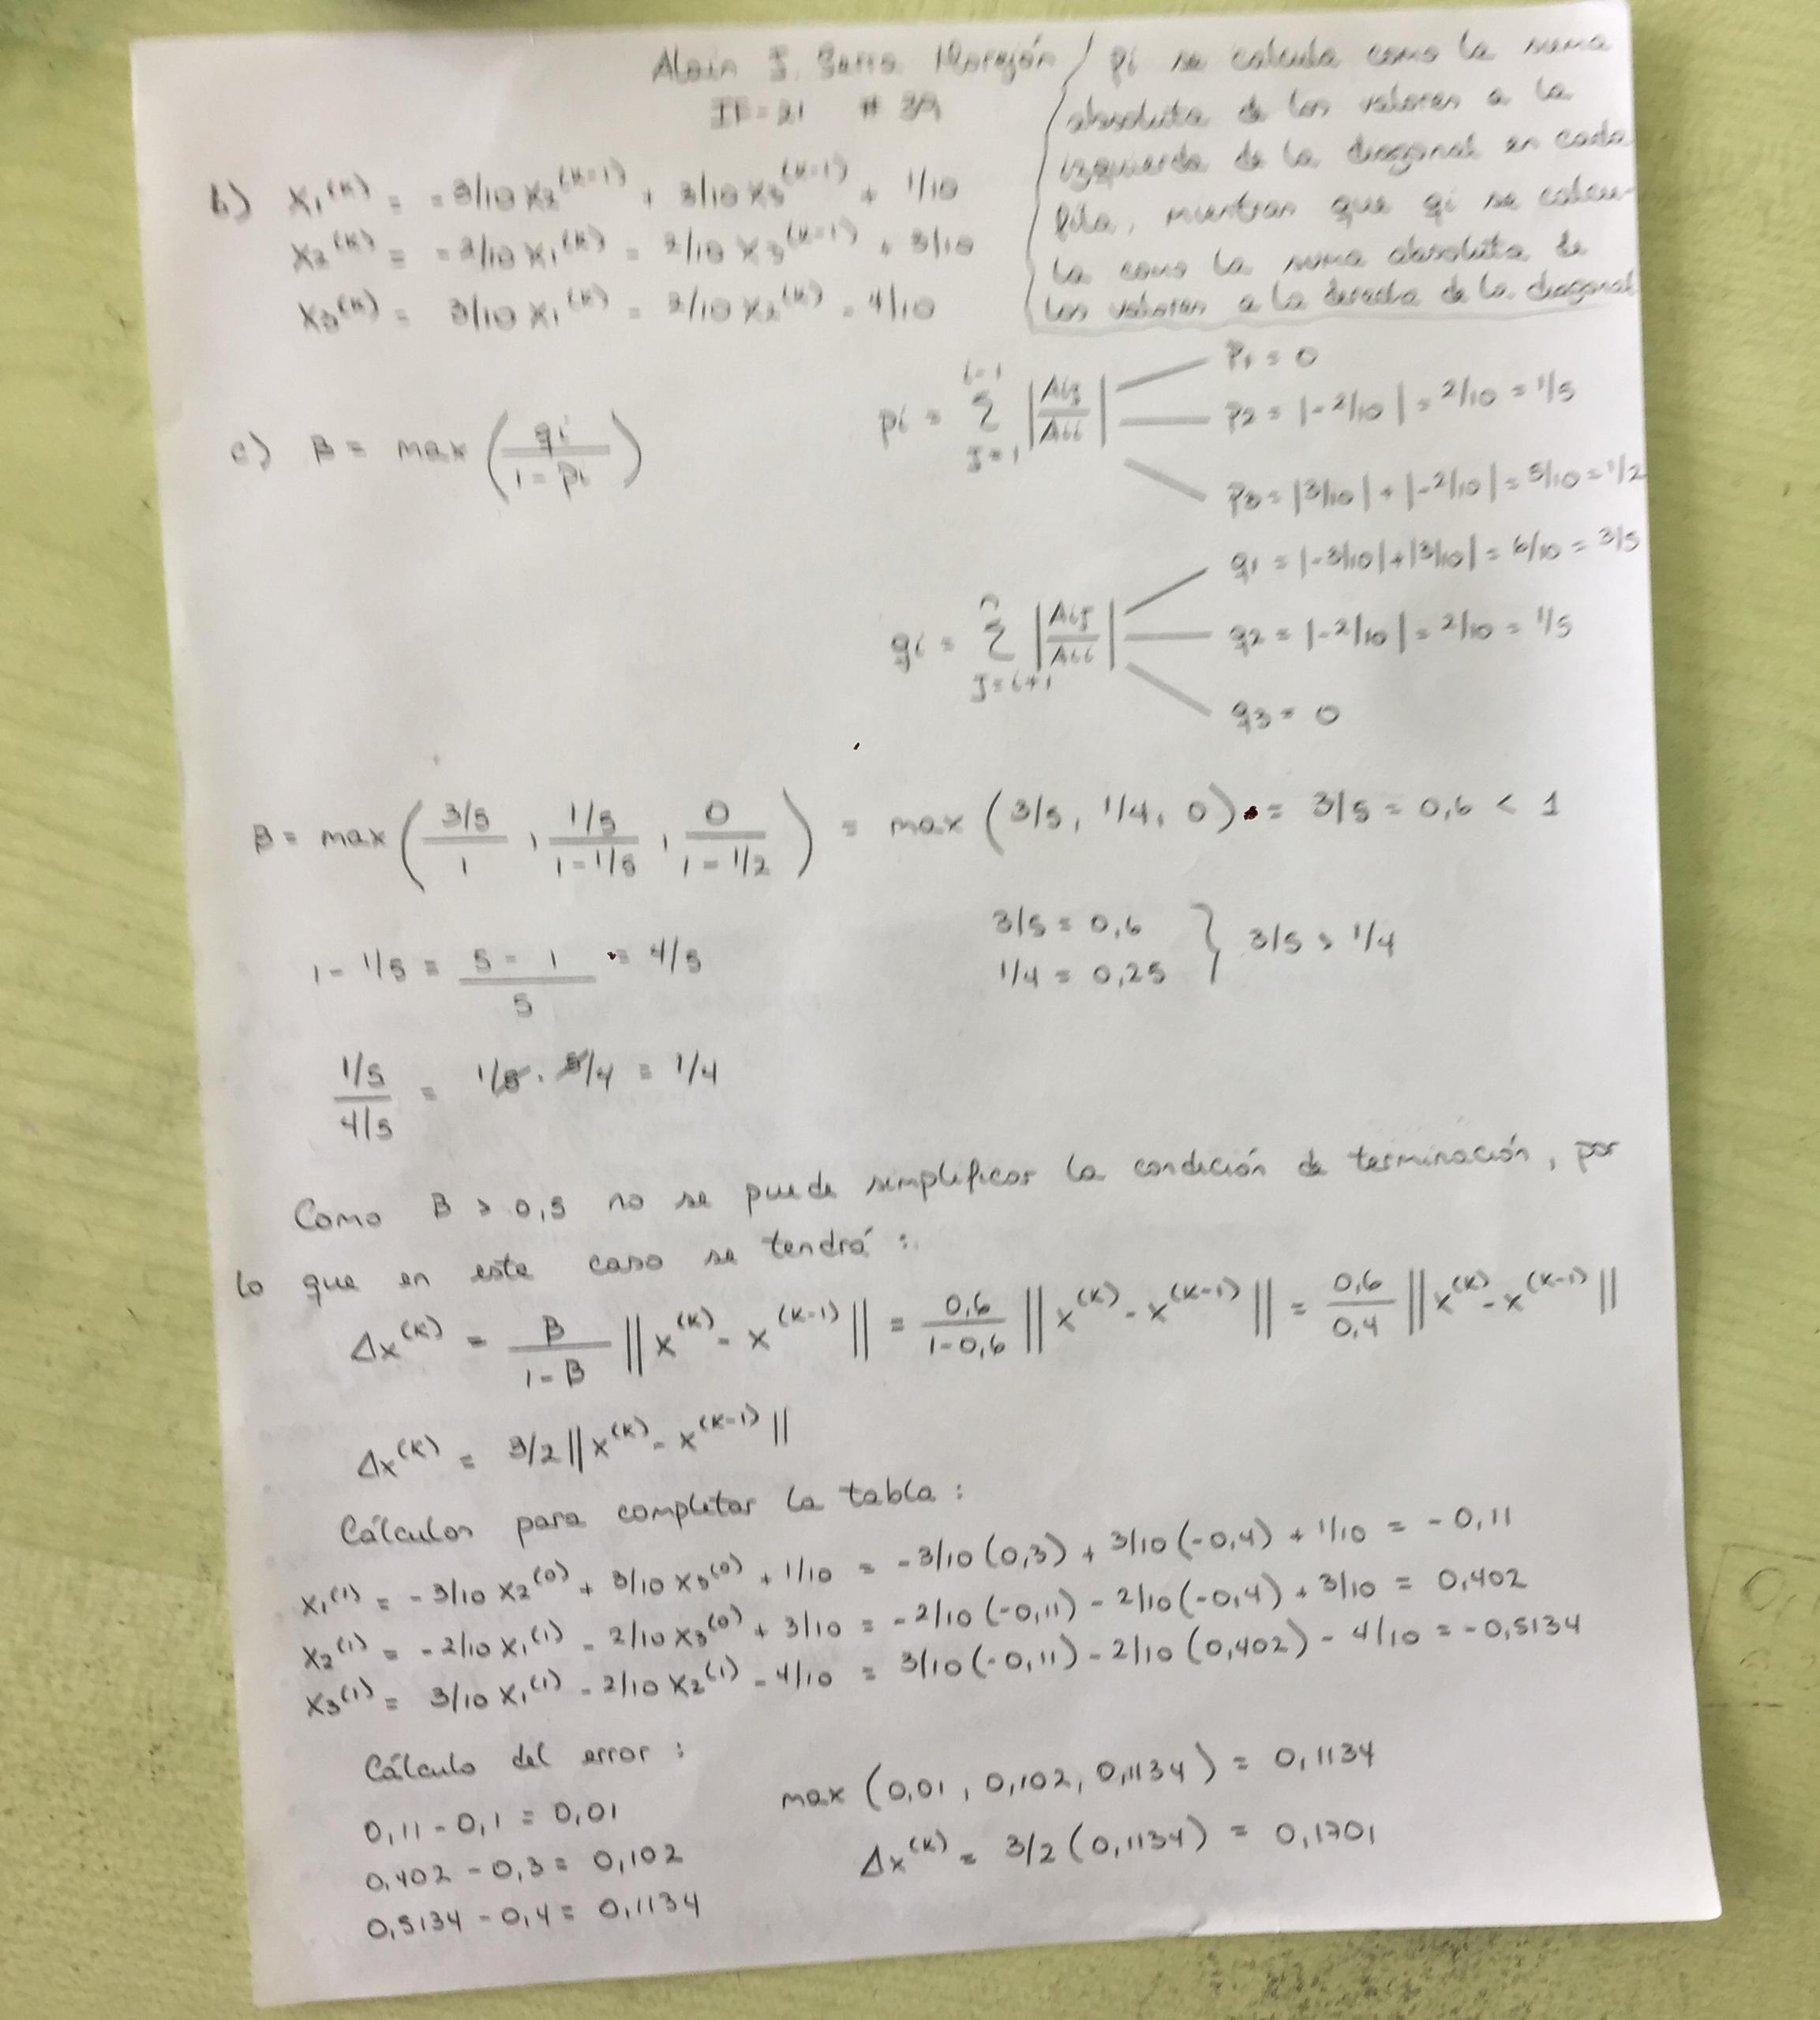 Alain J. Serra Morejón
IF-21 # 39
pi se calcula como la suma
absoluta de los valores a la
izquierda de la diagonal en cada
fila, mientras que qi se calcu-
la como la suma absoluta de
los valores a la derecha de la diagonal
b) X₁⁽ᴷ⁾ = -3/10 X₂⁽ᴷ⁻¹⁾ + 3/10 X₃⁽ᴷ⁻¹⁾ + 1/10
X₂⁽ᴷ⁾ = -2/10 X₁⁽ᴷ⁾ - 2/10 X₃⁽ᴷ⁻¹⁾ + 3/10
X₃⁽ᴷ⁾ = 3/10 X₁⁽ᴷ⁾ - 2/10 X₂⁽ᴷ⁾ - 4/10
c) β = max (qi / (1 - pi))
pi = Σ_{J=1}^{i-1} |Aij/Aii|
P1 = 0
P2 = |-2/10| = 2/10 = 1/5
P3 = |3/10| + |-2/10| = 5/10 = 1/2
qi = Σ_{J=i+1}^{n} |Aij/Aii|
q1 = |-3/10| + |3/10| = 6/10 = 3/5
q2 = |-2/10| = 2/10 = 1/5
q3 = 0
β = max ( (3/5)/1 , (1/5)/(1-1/5) , 0/(1-1/2) ) = max (3/5, 1/4, 0) = 3/5 = 0,6 < 1
1 - 1/5 = (5 - 1)/5 = 4/5
3/5 = 0,6
1/4 = 0,25 } 3/5 > 1/4
(1/5)/(4/5) = 1/5 · 5/4 = 1/4
Como β > 0,5 no se puede simplificar la condición de terminación, por
lo que en este caso se tendrá:
Δx⁽ᴷ⁾ = β/(1-β) ||x⁽ᴷ⁾ - x⁽ᴷ⁻¹⁾|| = 0,6/(1-0,6) ||x⁽ᴷ⁾ - x⁽ᴷ⁻¹⁾|| = 0,6/0,4 ||x⁽ᴷ⁾ - x⁽ᴷ⁻¹⁾||
Δx⁽ᴷ⁾ = 3/2 ||x⁽ᴷ⁾ - x⁽ᴷ⁻¹⁾||
Cálculos para completar la tabla:
X₁⁽¹⁾ = -3/10 X₂⁽⁰⁾ + 3/10 X₃⁽⁰⁾ + 1/10 = -3/10 (0,3) + 3/10 (-0,4) + 1/10 = -0,11
X₂⁽¹⁾ = -2/10 X₁⁽¹⁾ - 2/10 X₃⁽⁰⁾ + 3/10 = -2/10 (-0,11) - 2/10 (-0,4) + 3/10 = 0,402
X₃⁽¹⁾ = 3/10 X₁⁽¹⁾ - 2/10 X₂⁽¹⁾ - 4/10 = 3/10 (-0,11) - 2/10 (0,402) - 4/10 = -0,5134
Cálculo del error:
0,11 - 0,1 = 0,01
0,402 - 0,3 = 0,102
0,5134 - 0,4 = 0,1134
max (0,01, 0,102, 0,1134) = 0,1134
Δx⁽ᴷ⁾ = 3/2 (0,1134) = 0,1701